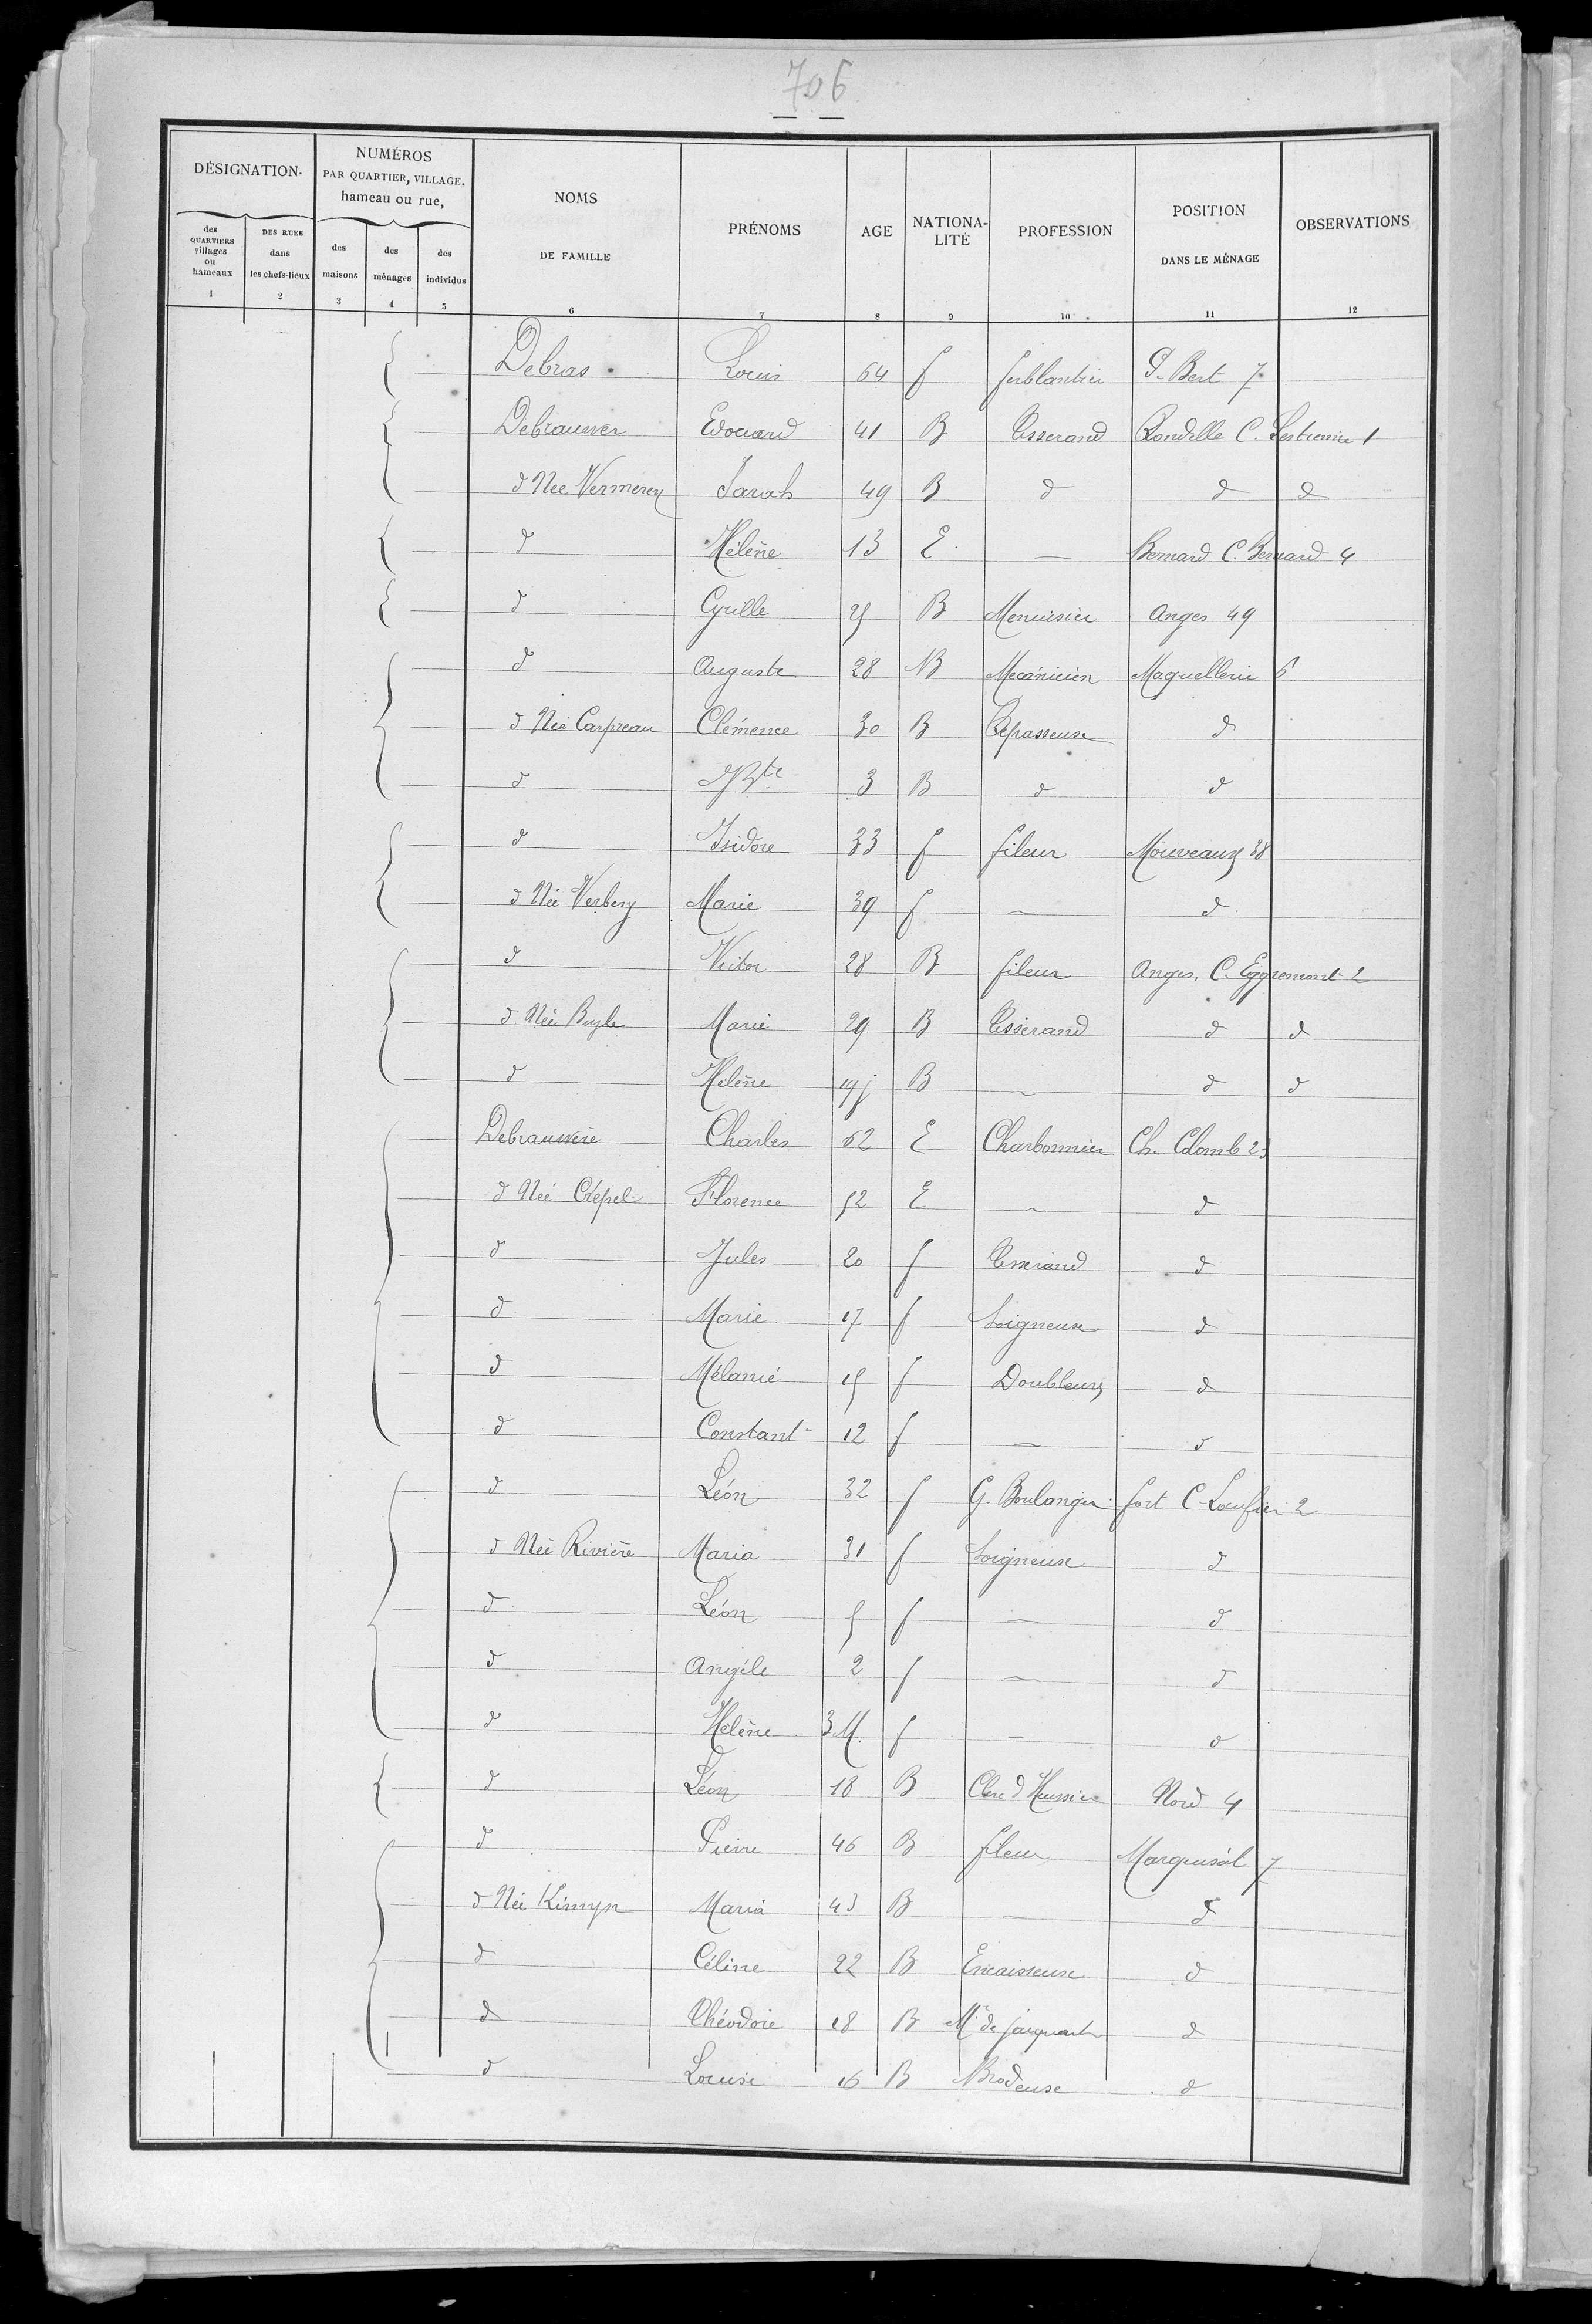 706
DÉSIGNATION.
NUMÉROS
PAR QUARTIER, VILLAGE.
hameau ou rue,
des QUARTIERS villages ou hameaux
DES RUES dans les chefs-lieux
des maisons
des ménages
des individus
NOMS
DE FAMILLE
PRÉNOMS
AGE
NATIONA-
LITÉ
PROFESSION
POSITION
DANS LE MÉNAGE
OBSERVATIONS
1 2 3 4 5 6 7 8 9 10 11 12
Debras Louis 64 f ferblantier P. Bert 7
Debrauwer Edouard 41 B Tisserand Rondelle C. 1
d Née Vermeren Sarah 49 B d d d
d Hélène 13 E. — Bernard C. Bernard 4
d Cyrille 25 B Menuisier Anges 49
d Auguste 28 B Mecánicien Maquellerie 6
d Née Carpreau Clémence 30 B Repasseuse d
d JBte 3 B d d
d Isidore 33 f fileur Mouveaux 38
d Née Marie 39 f — d
d Victor 28 B fileur Anges, C. Eggremont 2
d Née Buyle Marie 29 B Tisserand d d
d Hélène 19 j B — d d
Debrauwère Charles 62 E Charbonnier Ch. Colomb 23
d Née Crépel Florence 52 E — d
d Jules 20 f Tisserand d
d Marie 17 f Soigneuse d
d Mélanie 15 f Doubleuse d
d Constant 12 f — d
d Léon 32 f G. Boulanger fort C. 2
d Née Rivière Maria 31 f Soigneuse d
d Léon 5 f — d
d Angèle 2 f — d
d Hélène 3 M. f — d
d Léon 18 B Clerc d Huissier Nord 4
d Pierre 46 B fileur Marquisat 7
d Née Maria 43 B — d
d Céline 22 B Encaisseuse d
d Théodore 18 B Md de d
d Louise 16 B Brodeuse d